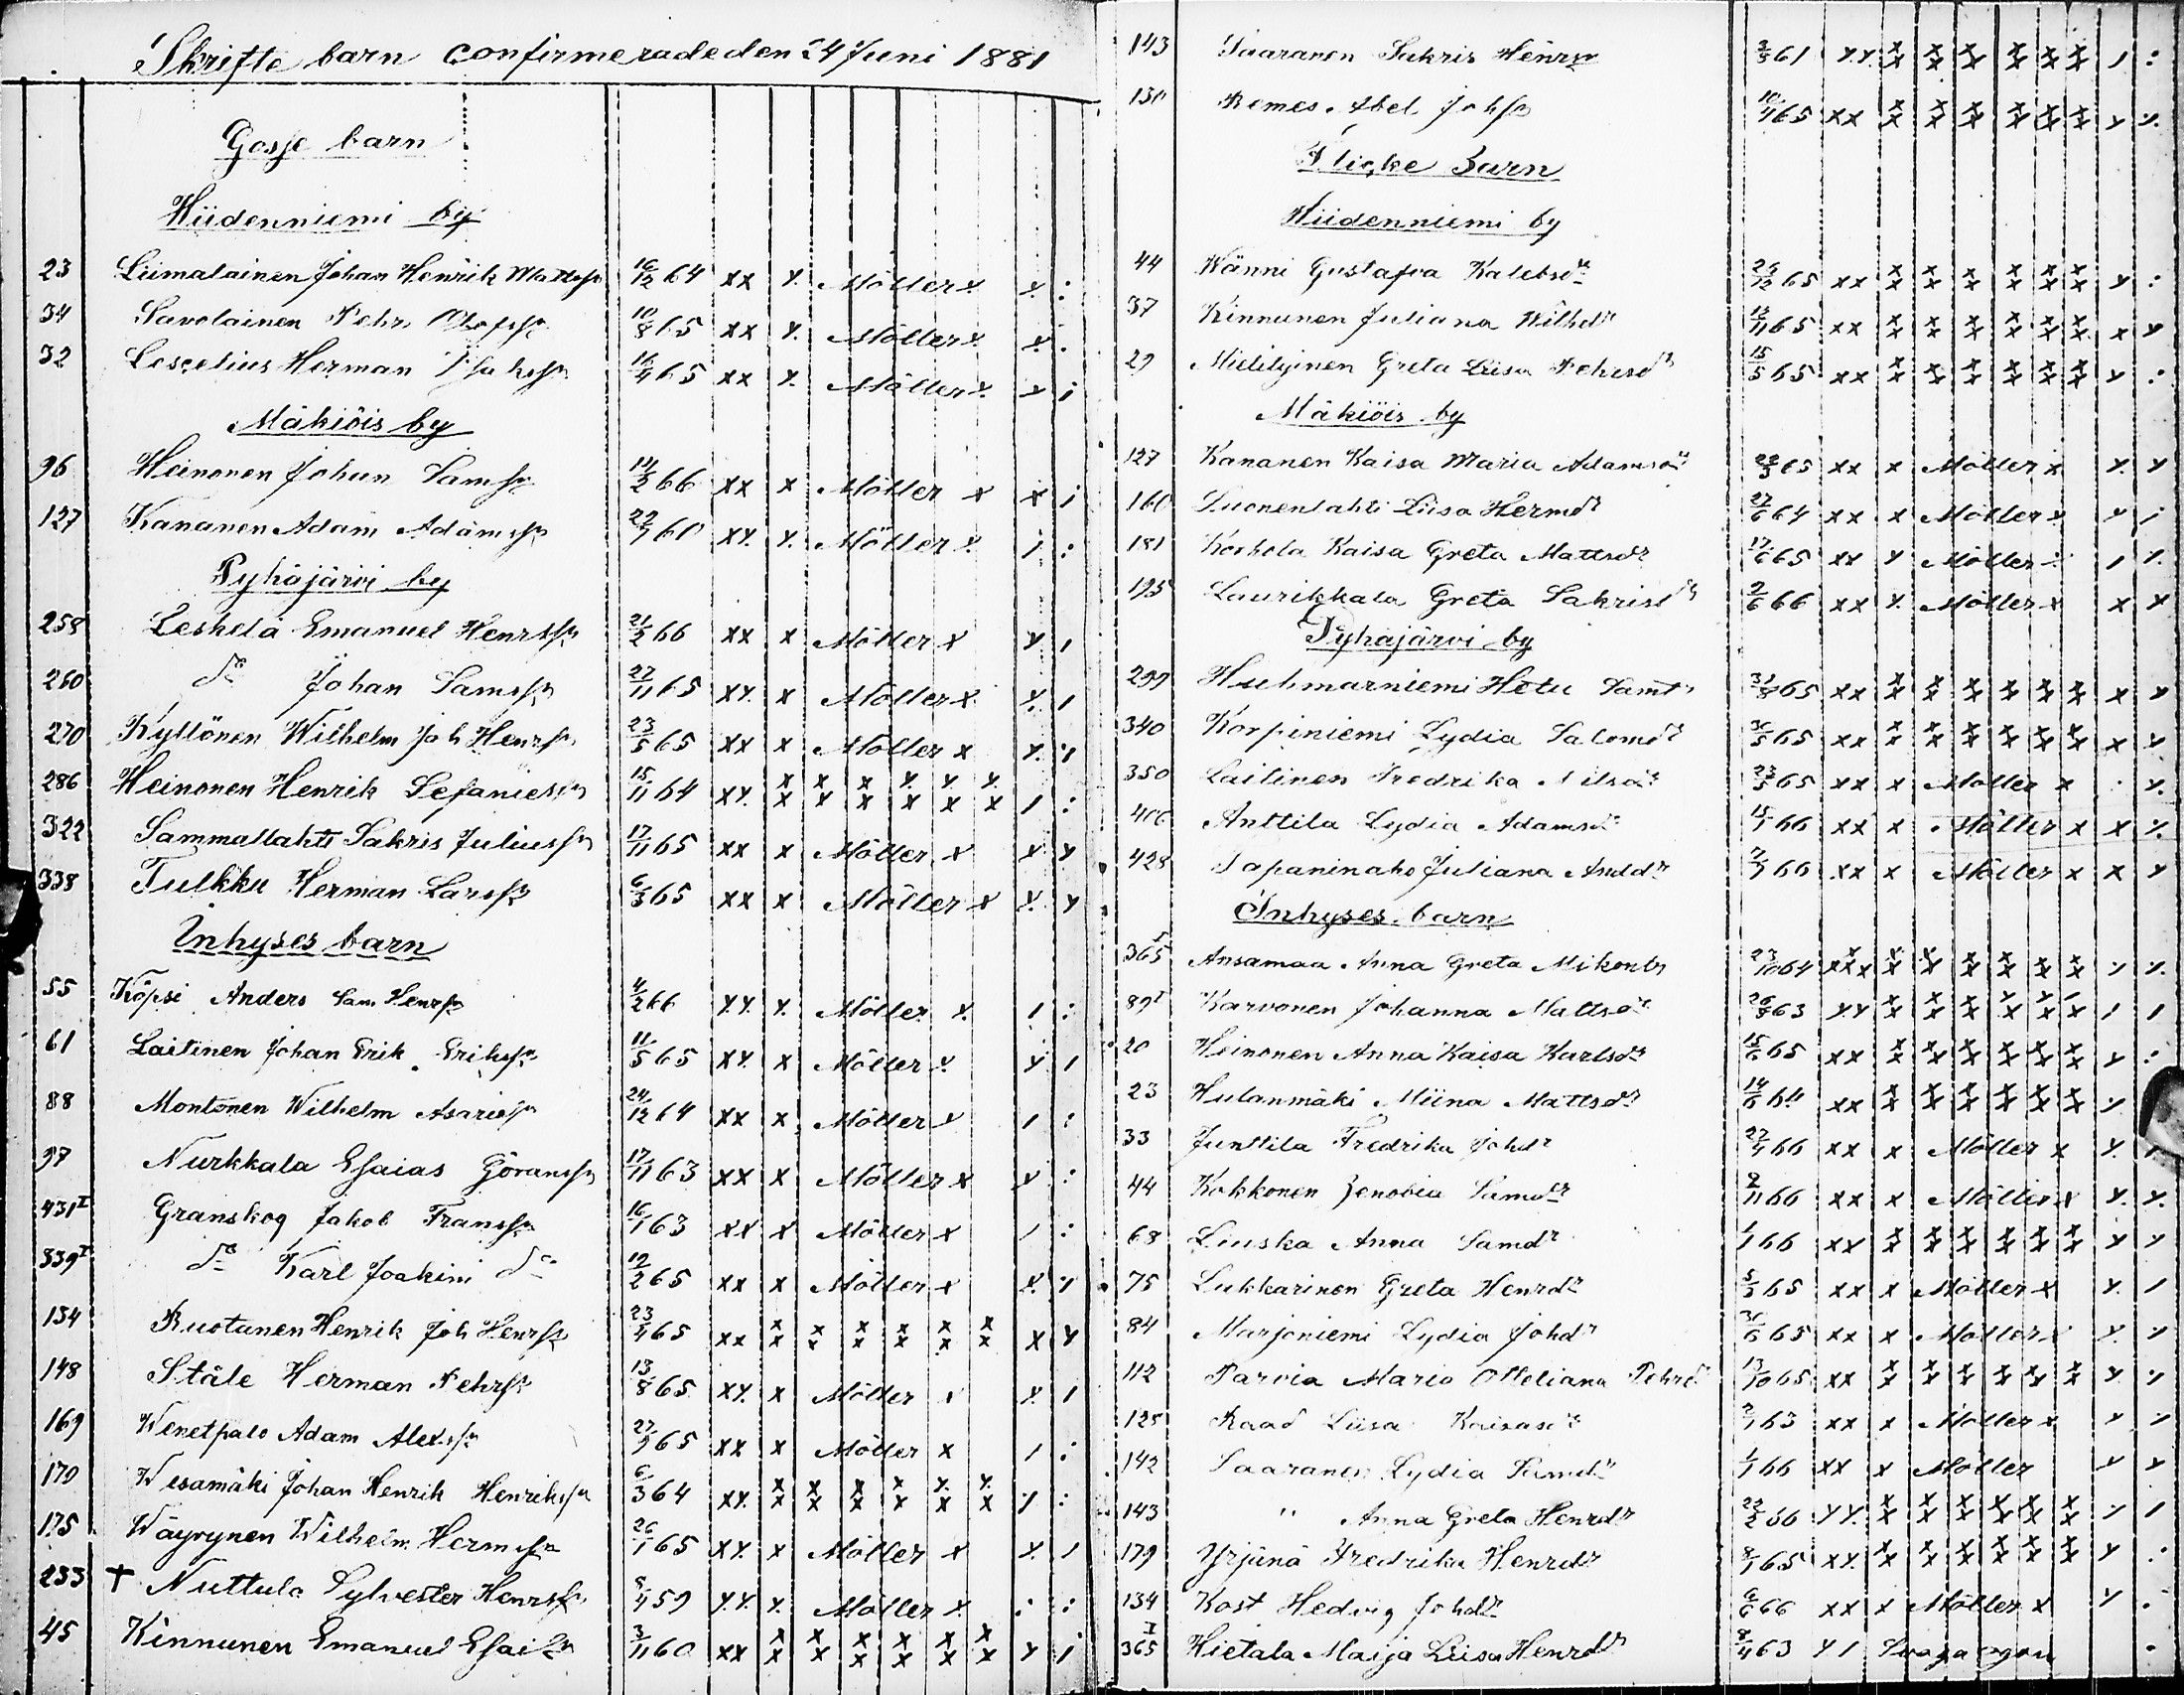 Skrifte barn confirmerade den 24 Juni 1881
Gosse barn
Hiidenniemi by
23 Liimatainen Johan Henrik Mattss 16/12 64 xx x Möller x x :
34 Savolainen Pehr 10/8 65 xx x Möller x x :
32 Lescelius Herman 16/4 65 xx x Möller x x i
Mäkiöis by
96 Heinonen Johan Samss 14/2 66 xx x Möller x x i
127 Kananen Adam Adamss 22/7 60 xx x Möller x / :
Pyhäjärvi by
258 Leskelä Emanuel Henrss 21/2 66 xx x Möller x x /
260 Do Johan Samss 27/11 65 xx x Möller x x /
270 Kyllönen Wilhelm Joh Henrss 23/5 65 xx x Möller x x x
286 Heinonen Henrik Sefaniess 15/11 64 xx x x x x x x x x x x x x / :
322 Sammallahti Sakris Juliuss 17/11 65 xx x Möller x x x
338 Tulkku Herman Larss 6/3 65 xx x Möller x x x
Inhyses barn
55 Köpsi Anders Sam Henrss 4/2 66 xx x Möller x / :
61 Laitinen Johan Erik Erikss 11/5 65 xx x Möller x x /
88 Montonen Wilhelm Asariess 24/12 64 xx x Möller x / :
97 Nurkkala Esaias Göranss 17/11 63 xx x Möller x x :
431 I Granskog Jakob Franss 16/1 63 xx x Möller x / :
339 I Do Karl Joakim Do 12/2 65 xx x Möller x x x
134 Ruotanen Henrik Joh Henrss 23/4 65 xx x x x x x x x x x x x x x x
148 Ståle Herman Pehrss 13/8 65 xx x Möller x x /
169 Wenetpalo Adam Alexss 27/9 65 xx x Möller x / :
170 Wesamäki Johan Henrik Henrikss 6/3 64 xx x x x x x x x x x x x x x :
175 Wäyrynen Wilhelm Hermss 26/1 65 xx x Möller x x /
233 † Nuttula Sylvester Henrss 8/4 59 xx x Möller x : :
45 Kinnunen Emanuel Esaiss 3/11 60 xx x x x x x x x x x x x x x i
143 Saaranen Sakris Henrss 2/8 61 xx x x x x x x x x x x x x / :
130 Remes Abel Johss 10/4 65 xx x x x x x x x x x x x x x x
Flicke Barn
Hiidenniemi by
44 Wänni Gustafva Kalebsdr 26/12 65 xx x x x x x x x x x x x x x :
37 Kinnunen Juliana Wilhdr 12/11 65 xx x x x x x x x x x x x x x x
29 Mielityinen Greta Liisa Pehrsdr 15/5 65 xx x x x x x x x x x x x x x :
Mäkiöis by
127 Kananen Kaisa Maria Adamsdr 22/3 65 xx x Möller x x x
160 Luonenlahti Liisa Hermdr 27/6 64 xx x Möller x x i
181 Korhola Kaisa Greta Mattsdr 17/6 65 xx x Möller x / x
195 Laurikkala Greta Sakrisdr 2/6 66 xx x Möller x x x
Pyhäjärvi by
299 Huhmarniemi Hetu Samdr 31/8 65 xx x x x x x x x x x x x x x x
340 Korpiniemi Lydia Salomdr 30/5 65 xx x x x x x x x x x x x x x x
350 Laitinen Fredrika Nilsdr 23/3 65 xx x Möller x . x
406 Anttila Lydia Adamsdr 15/1 66 xx x Möller x x x
428 Tapaninaho Juliana Anddr 7/7 66 xx x Möller x x x
Inhyses barn
365 Ansamaa Anna Greta 23/10 64 xxx x x x x x x x x x x x x x x
89 I Karvonen Johanna Mattsdr 26/8 63 xx x x x x x x x x x x x x / /
20 Heinonen Anna Kaisa Karlsdr 15/6 65 xx x x x x x x x x x x x x x :
23 Hulanmäki Miina Mattsdr 14/6 64 xx x x x x x x x x x x x x x
33 Junttila Fredrika Johdr 27/4 66 xx x Möller x x
44 Kokkonen Zenobia Samdr 8/11 66 xx x Möller x x x
68 Liuska Anna Samdr 1/1 66 xx x x x x x x x x x x x x x x
75 Lukkarinen Greta Henrdr 5/3 65 xx x Möller x x /
84 Marjoniemi Lydia Johdr 30/6 65 xx x Möller x x x
112 Parvia Maria Otteliana Pehrdr 13/10 65 xx x x x x x x x x x x x x x x
125 Raad Liisa Kaisasdr 2/1 63 xx x Möller x x x
142 Saaranen Lydia Samdr 1/1 66 xx x Möller x x
143 " Anna Greta Henrdr 22/2 66 xx x x x x x x x x x x x x x /
179 Yrjänä Fredrika Henrdr 8/1 65 xx x x x x x x x x x x x x x :
134 Kost Hedvig Johdr 6/6 66 xx x Möller x x .
365 I Hietala Maija Liisa Henrdr 8/4 63 x /